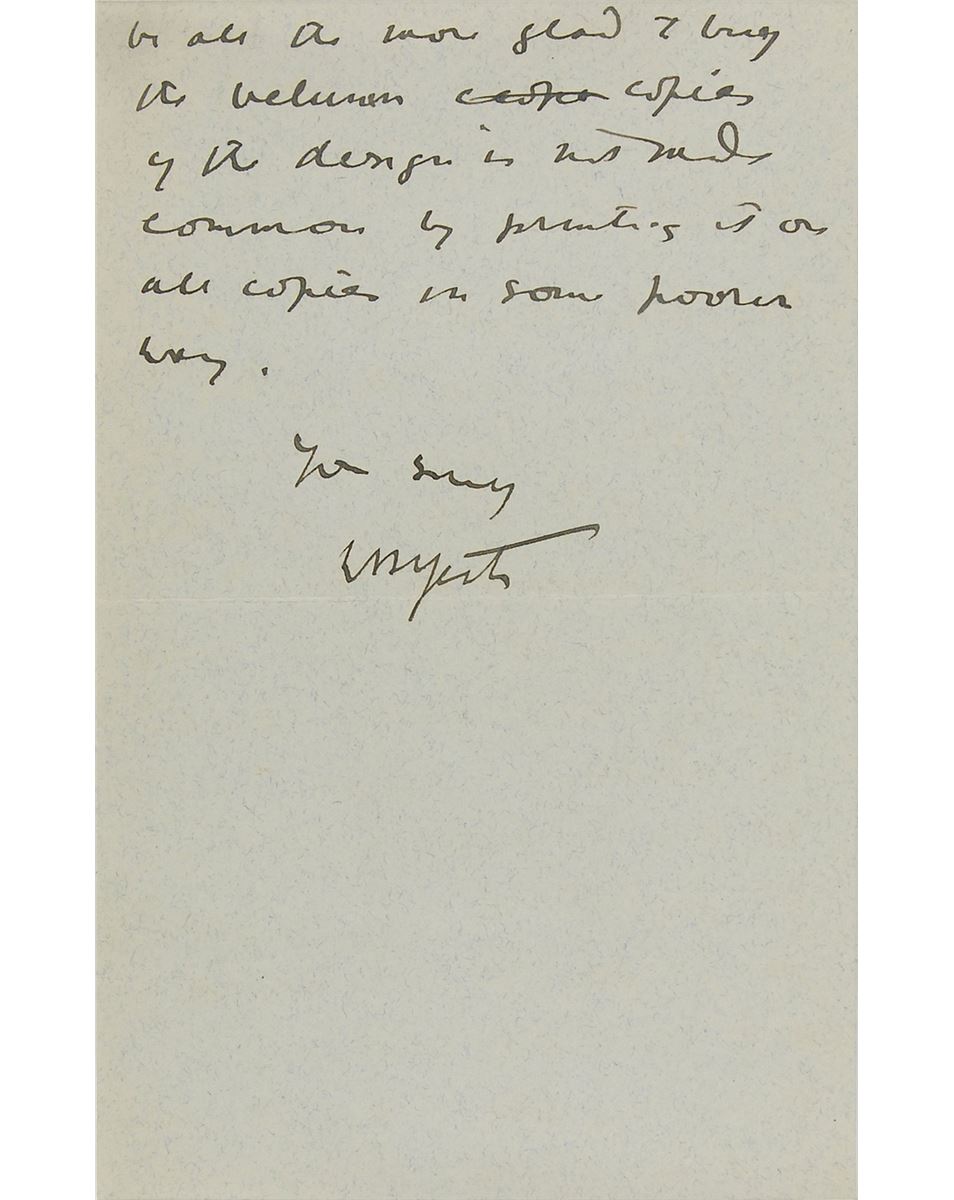 be all the more glad to buy
the vellumn copies
if the design is not made
common by printing it on
all copies in some poorer
way.
Yrs sincly
WB Yeats